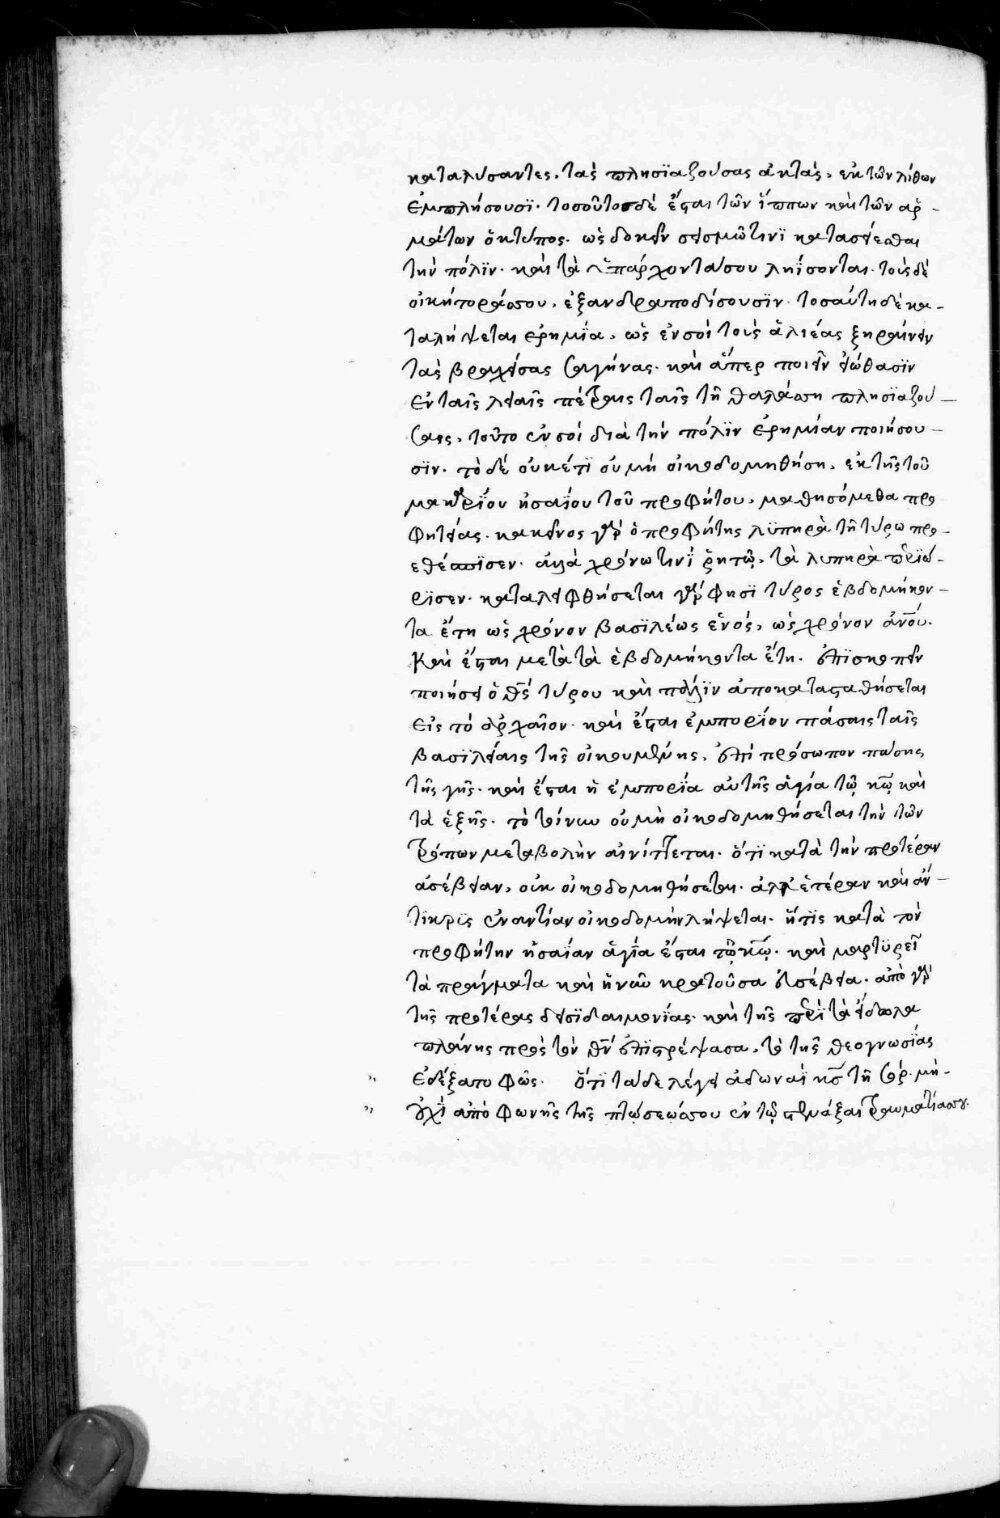 καταλύσαντες, τὰς πλησϊαζούσας ἀκτὰς, ἐκ τῶν λίθων
ἐμπλήσουσϊ· τοσοῦτος δὲ ἔσται τῶν ἵππων καὶ τῶν ἁρ-
μάτων ὁ κτύπος· ὡς δοκεῖν σεισμῶ τινϊ κατασείεσθαι
τὴν πόλϊν· καὶ τὰ ὑπάρχοντά σου ληΐσονται· τοὺς δὲ
οἰκήτοράς σου, ἐξανδραποδίσουσϊν· τοσαύτη δὲ κα-
ταλήψεται ἐρημΐα, ὡς ἐν σοὶ τοὺς ἁλιέας ξηραίνειν
τὰς βραχείσας σαγήνας· καὶ ἅπερ ποιεῖν εἰώθασϊν
ἐν ταῖς λείαις πέτραις ταῖς τῆ θαλάσση πλησϊαζού-
σαις, τοῦτο ἐν σοὶ διὰ τὴν πόλϊν ἐρημίαν ποιήσου-
σϊν· τὸ δὲ οὐκέτϊ οὐ μὴ οἰκοδομηθήση, ἐκ τῆς τοῦ
μακαρΐου ἡσαΐου τοῦ προφήτου, μαθησόμεθα προ
φητείας· κακεῖνος γὰρ ὁ προφήτης λϋπηρὰ τῆ τύρω προ-
εθέσπϊσεν· ἀλλὰ χρόνω τινΐ ῥητῶ, τὰ λυπηρὰ περϊώ-
ρϊσεν· καταλειφθήσεται γάρ φησϊ τύρος ἑβδομήκον-
τα ἔτη ὡς χρόνον βασϊλέως ἑνός, ὡς χρόνον ἀν̅ου·
καὶ ἔσται μετὰ τὰ ἑβδομήκοντα ἔτη· ἐπϊσκοπὴν
ποιήσει ὁ θ̅ς τύρου καὶ πάλϊν ἀποκατασταθήσεται
εἰς τὸ ἀρχαῖον· καὶ ἔσται ἐμπορΐον πάσαις ταῖς
βασϊλείαις τῆς οἰκουμένης, ἐπὶ πρόσωπον πάσης
τῆς γῆς· καὶ ἔσται ἡ ἐμπορΐα αὐτῆς ἁγία τῶ κ̅ω καὶ
τὰ ἑξῆς· τὸ τοίνυν οὐ μὴ οἰκοδομηθήσεται τὴν τῶν
τρόπων μεταβολὴν αἰνίττεται· ὅτϊ κατὰ τὴν προτέραν
ἀσέβειαν, οὐκ οἰκοδομηθήσεται· ἀλλ' ἑτέραν καὶ ἀν-
τϊκρϋς ἐναντίαν οἰκοδομὴν λήψεται· ἥτϊς κατὰ τὸν
προφήτην ἡσαΐαν ἁγΐα ἔσται τῶ κ̅ω· καὶ μαρτϋρεῖ
τὰ πράγματα καὶ ἡ νῦν κρατοῦσα εὐσέβεια· ἀπὸ γὰρ
τῆς προτέρας δεισϊδαιμονΐας· καὶ τῆς περὶ τὰ εἴδωλα
πλάνης πρὸς τὸν θ̅ν ἐπϊστρέψασα, τὸ τῆς θεογνωσΐας
ἐδέξατο φῶς· ὅτϊ τάδε λέγει ἀδωναΐ κ̅ς τῆ σόρ· μὴ-
οὐχΐ ἀπὸ φωνῆς τῆς πτώσεώς σου ἐν τῶ στενάξαι τραυματίας σου